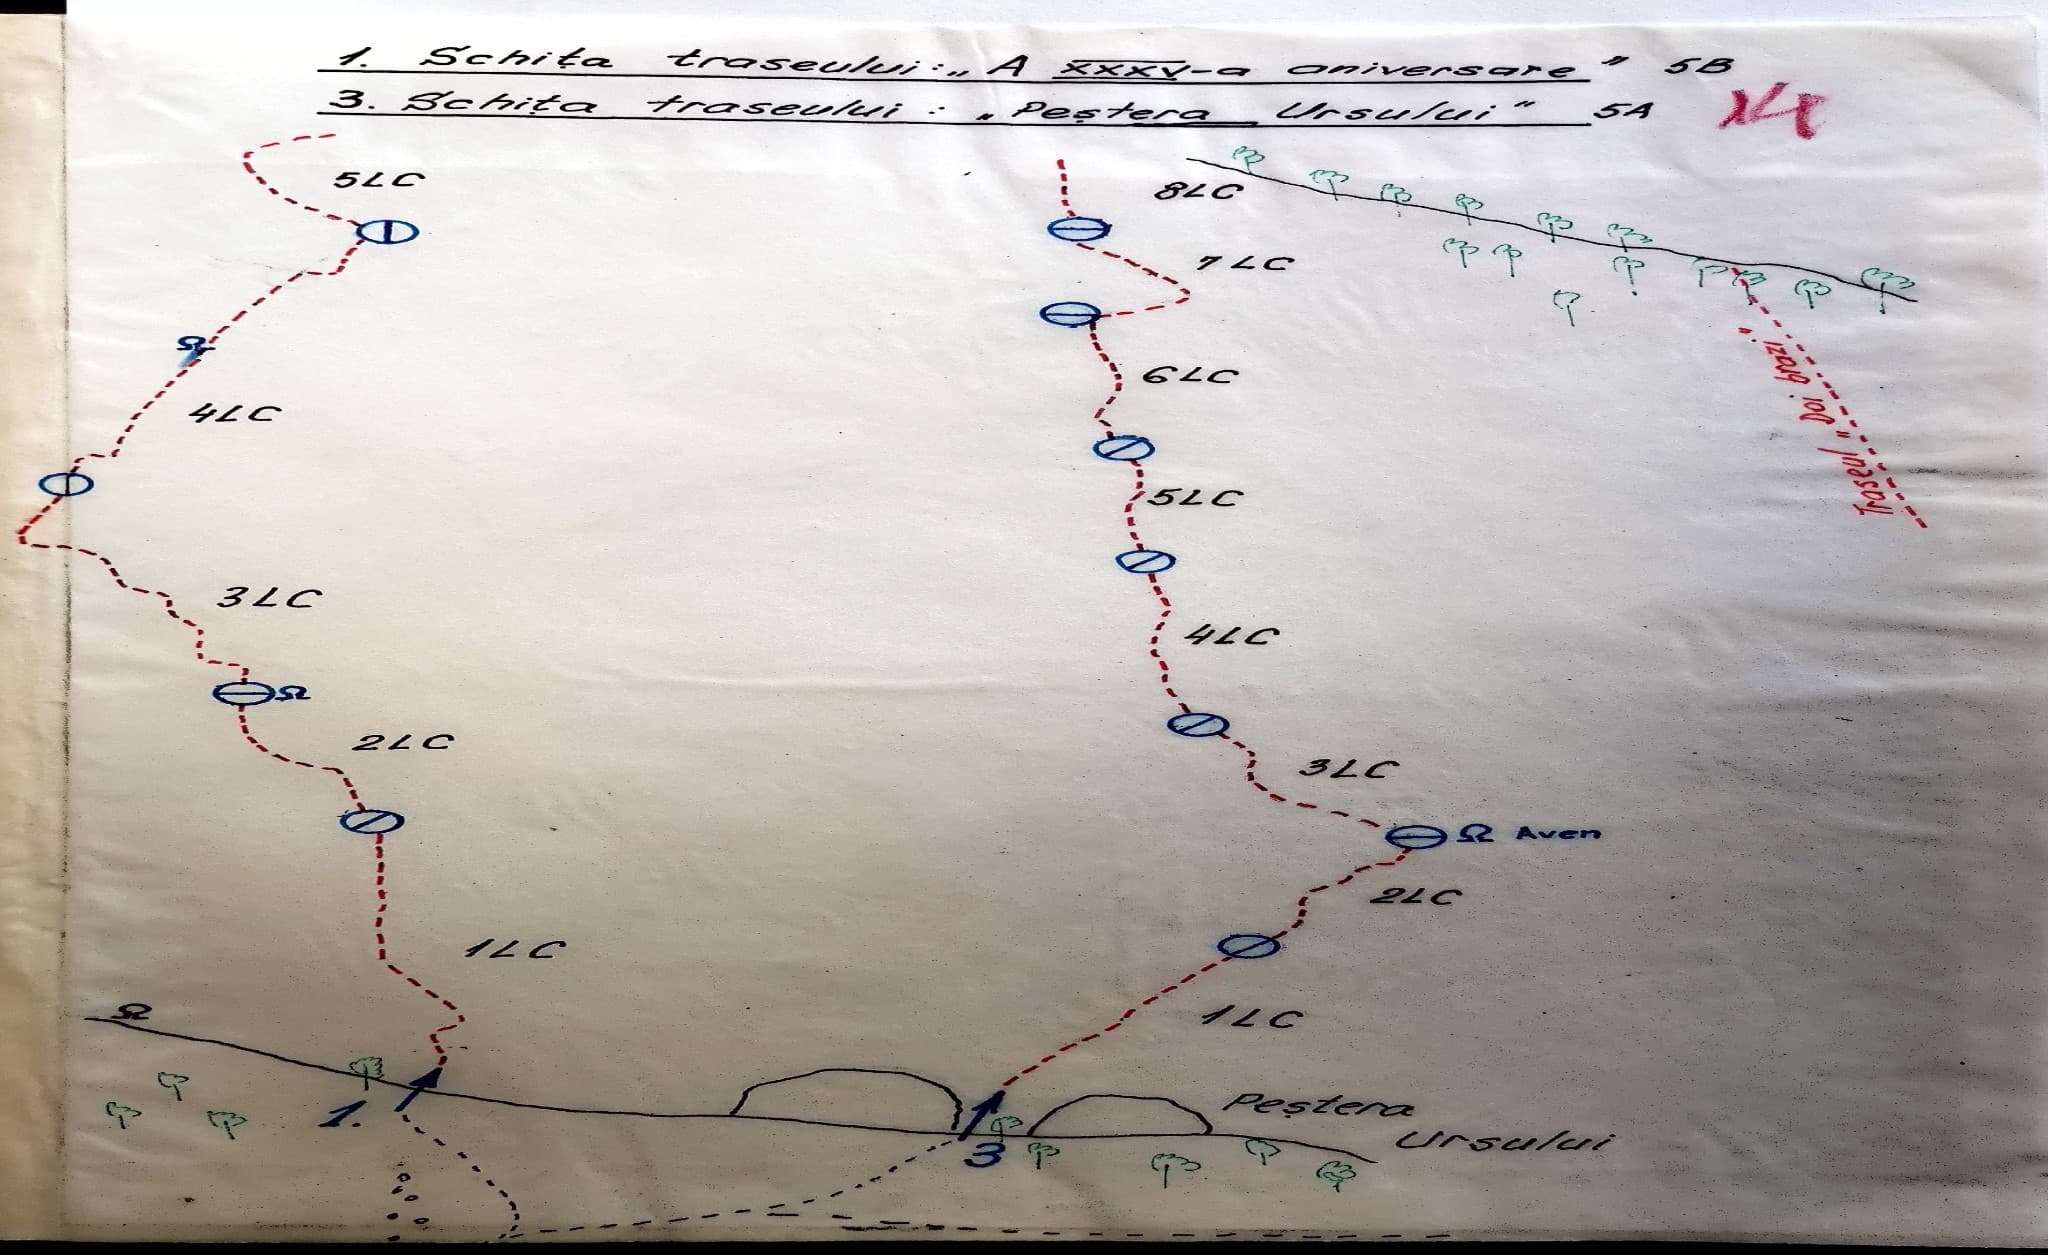 1. Schița traseului: „A XXXV-a aniversare" 5B
3. Schița traseului: „Peștera Ursului" 5A
X4
5LC
4LC
3LC
Ω
2LC
1LC
Ω
1.
8LC
7LC
6LC
5LC
4LC
3LC
Ω Aven
2LC
1LC
3
Peștera
Ursului
Traseul „Doi brazi"